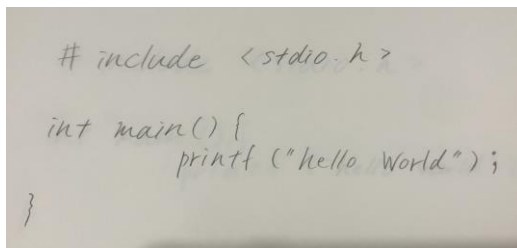 # include <stdio.h>
int main() {
printf ("hello World");
}